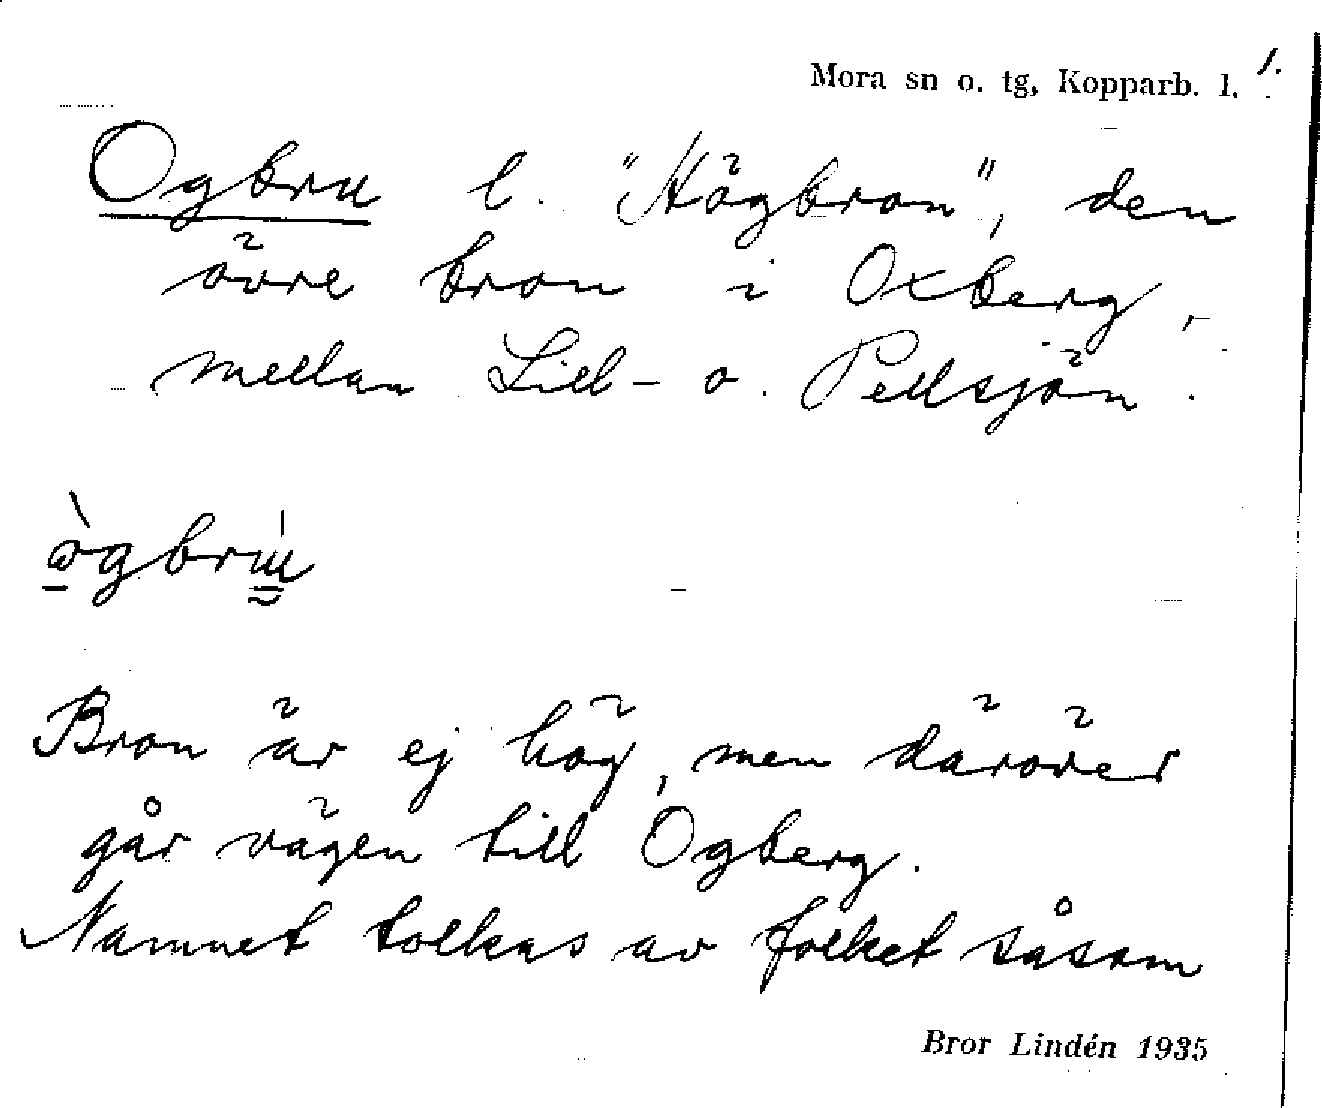 Mora sn o. tg, Kopparb. l. 1.
Ogbru l. "Högbron", den
övre bron i Oxberg,
mellan Lill- o. Pellsjön.
Bron är ej hög, men däröver
går vägen till Ogberg.
Namnet tolkas av folket såsom
Bror Lindén 1935